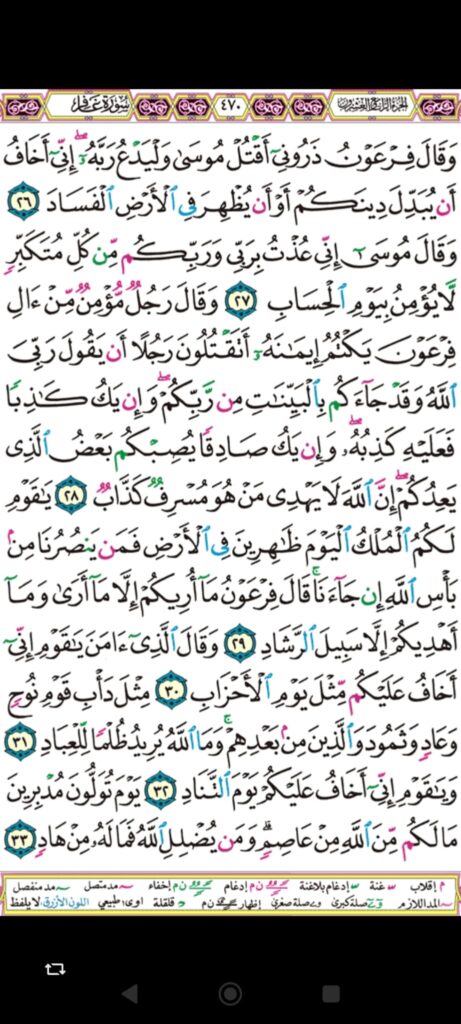 الجزء الرابع والعشرون ٤٧٠ سورة غافر
وَقَالَ فِرْعَوْنُ ذَرُونِيٓ أَقْتُلْ مُوسَىٰ وَلْيَدْعُ رَبَّهُۥٓۖ إِنِّيٓ أَخَافُ
أَن يُبَدِّلَ دِينَكُمْ أَوْ أَن يُظْهِرَ فِي ٱلْأَرْضِ ٱلْفَسَادَ ٢٦
وَقَالَ مُوسَىٰٓ إِنِّي عُذْتُ بِرَبِّي وَرَبِّكُم مِّن كُلِّ مُتَكَبِّرٍ
لَّا يُؤْمِنُ بِيَوْمِ ٱلْحِسَابِ ٢٧ وَقَالَ رَجُلٌ مُّؤْمِنٌ مِّنْ ءَالِ
فِرْعَوْنَ يَكْتُمُ إِيمَٰنَهُۥٓ أَتَقْتُلُونَ رَجُلًا أَن يَقُولَ رَبِّيَ
ٱللَّهُ وَقَدْ جَآءَكُم بِٱلْبَيِّنَٰتِ مِن رَّبِّكُمْۖ وَإِن يَكُ كَٰذِبًا
فَعَلَيْهِ كَذِبُهُۥۖ وَإِن يَكُ صَادِقًا يُصِبْكُم بَعْضُ ٱلَّذِي
يَعِدُكُمْۖ إِنَّ ٱللَّهَ لَا يَهْدِي مَنْ هُوَ مُسْرِفٌ كَذَّابٌ ٢٨ يَٰقَوْمِ
لَكُمُ ٱلْمُلْكُ ٱلْيَوْمَ ظَٰهِرِينَ فِي ٱلْأَرْضِ فَمَن يَنصُرُنَا مِنۢ
بَأْسِ ٱللَّهِ إِن جَآءَنَاۚ قَالَ فِرْعَوْنُ مَآ أُرِيكُمْ إِلَّا مَآ أَرَىٰ وَمَآ
أَهْدِيكُمْ إِلَّا سَبِيلَ ٱلرَّشَادِ ٢٩ وَقَالَ ٱلَّذِيٓ ءَامَنَ يَٰقَوْمِ إِنِّيٓ
أَخَافُ عَلَيْكُم مِّثْلَ يَوْمِ ٱلْأَحْزَابِ ٣٠ مِثْلَ دَأْبِ قَوْمِ نُوحٍ
وَعَادٍ وَثَمُودَ وَٱلَّذِينَ مِنۢ بَعْدِهِمْۚ وَمَا ٱللَّهُ يُرِيدُ ظُلْمًا لِّلْعِبَادِ ٣١
وَيَٰقَوْمِ إِنِّيٓ أَخَافُ عَلَيْكُمْ يَوْمَ ٱلتَّنَادِ ٣٢ يَوْمَ تُوَلُّونَ مُدْبِرِينَ
مَا لَكُم مِّنَ ٱللَّهِ مِنْ عَاصِمٍۗ وَمَن يُضْلِلِ ٱللَّهُ فَمَا لَهُۥ مِنْ هَادٍ ٣٣
م إقلاب غنة إدغام بلاغنة ن م إدغام ن م إخفاء مد متصل مد منفصل
المد اللازم صلة كبرى صلة صغرى إظهار ن م قلقلة اوى: طبيعي اللون الأزرق: لا يلفظ